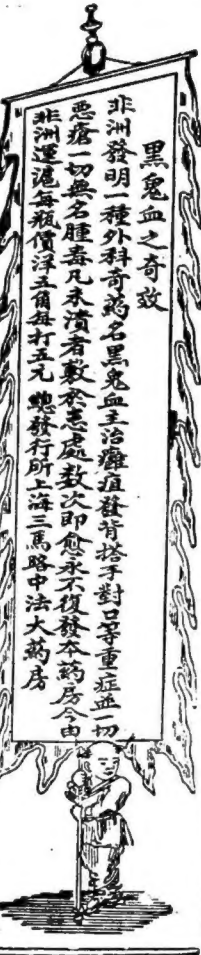 黑鬼血之奇效
非洲發明一種外科奇葯名黑鬼血主治癰疽發背搭手對口等重症並一切
惡瘡一切無名腫毒凡未潰者敷於患處数次即愈永不復發本葯房今由
非洲運滬每瓶價洋五角每打五元 總發行所上海三馬路中法大葯房